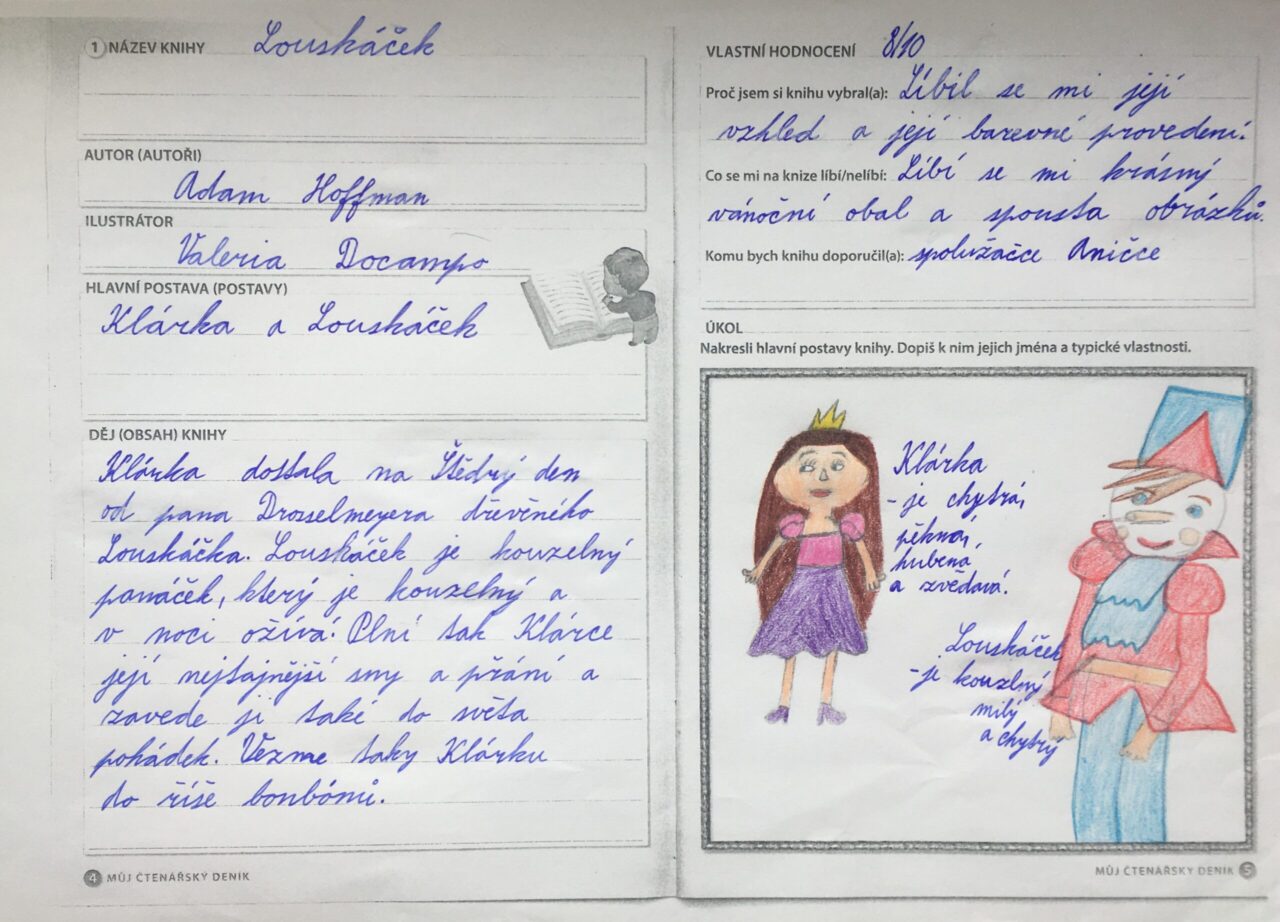 1 NÁZEV KNIHY Louskáček
AUTOR (AUTOŘI)
Adam Hoffman
ILUSTRÁTOR
Valeria Docampo
HLAVNÍ POSTAVA (POSTAVY)
Klárka a Louskáček
DĚJ (OBSAH) KNIHY
Klárka dostala na Štědrý den
od pana Droselmeyera dřevěného
Louskáčka. Louskáček je kouzelný
panáček, který je kouzelný a
v noci ožívá. Plní tak Klárce
její nejtajnější sny a přání a
zavede ji také do světa
pohádek. Vezme taky Klárku
do říše bonbónů.
4 MŮJ ČTENÁŘSKÝ DENÍK
VLASTNÍ HODNOCENÍ 8/10
Proč jsem si knihu vybral(a): Líbil se mi její
vzhled a její barevné provedení.
Co se mi na knize líbí/nelíbí: Líbí se mi krásný
vánoční obal a spousta obrázků.
Komu bych knihu doporučil(a): spolužačce Aničce
ÚKOL
Nakresli hlavní postavy knihy. Dopiš k nim jejich jména a typické vlastnosti.
Klárka
- je chytrá,
pěkná,
hubená
a zvědavá.
Louskáček
- je kouzlný
milý
a chytrý
MŮJ ČTENÁŘSKÝ DENÍK 5